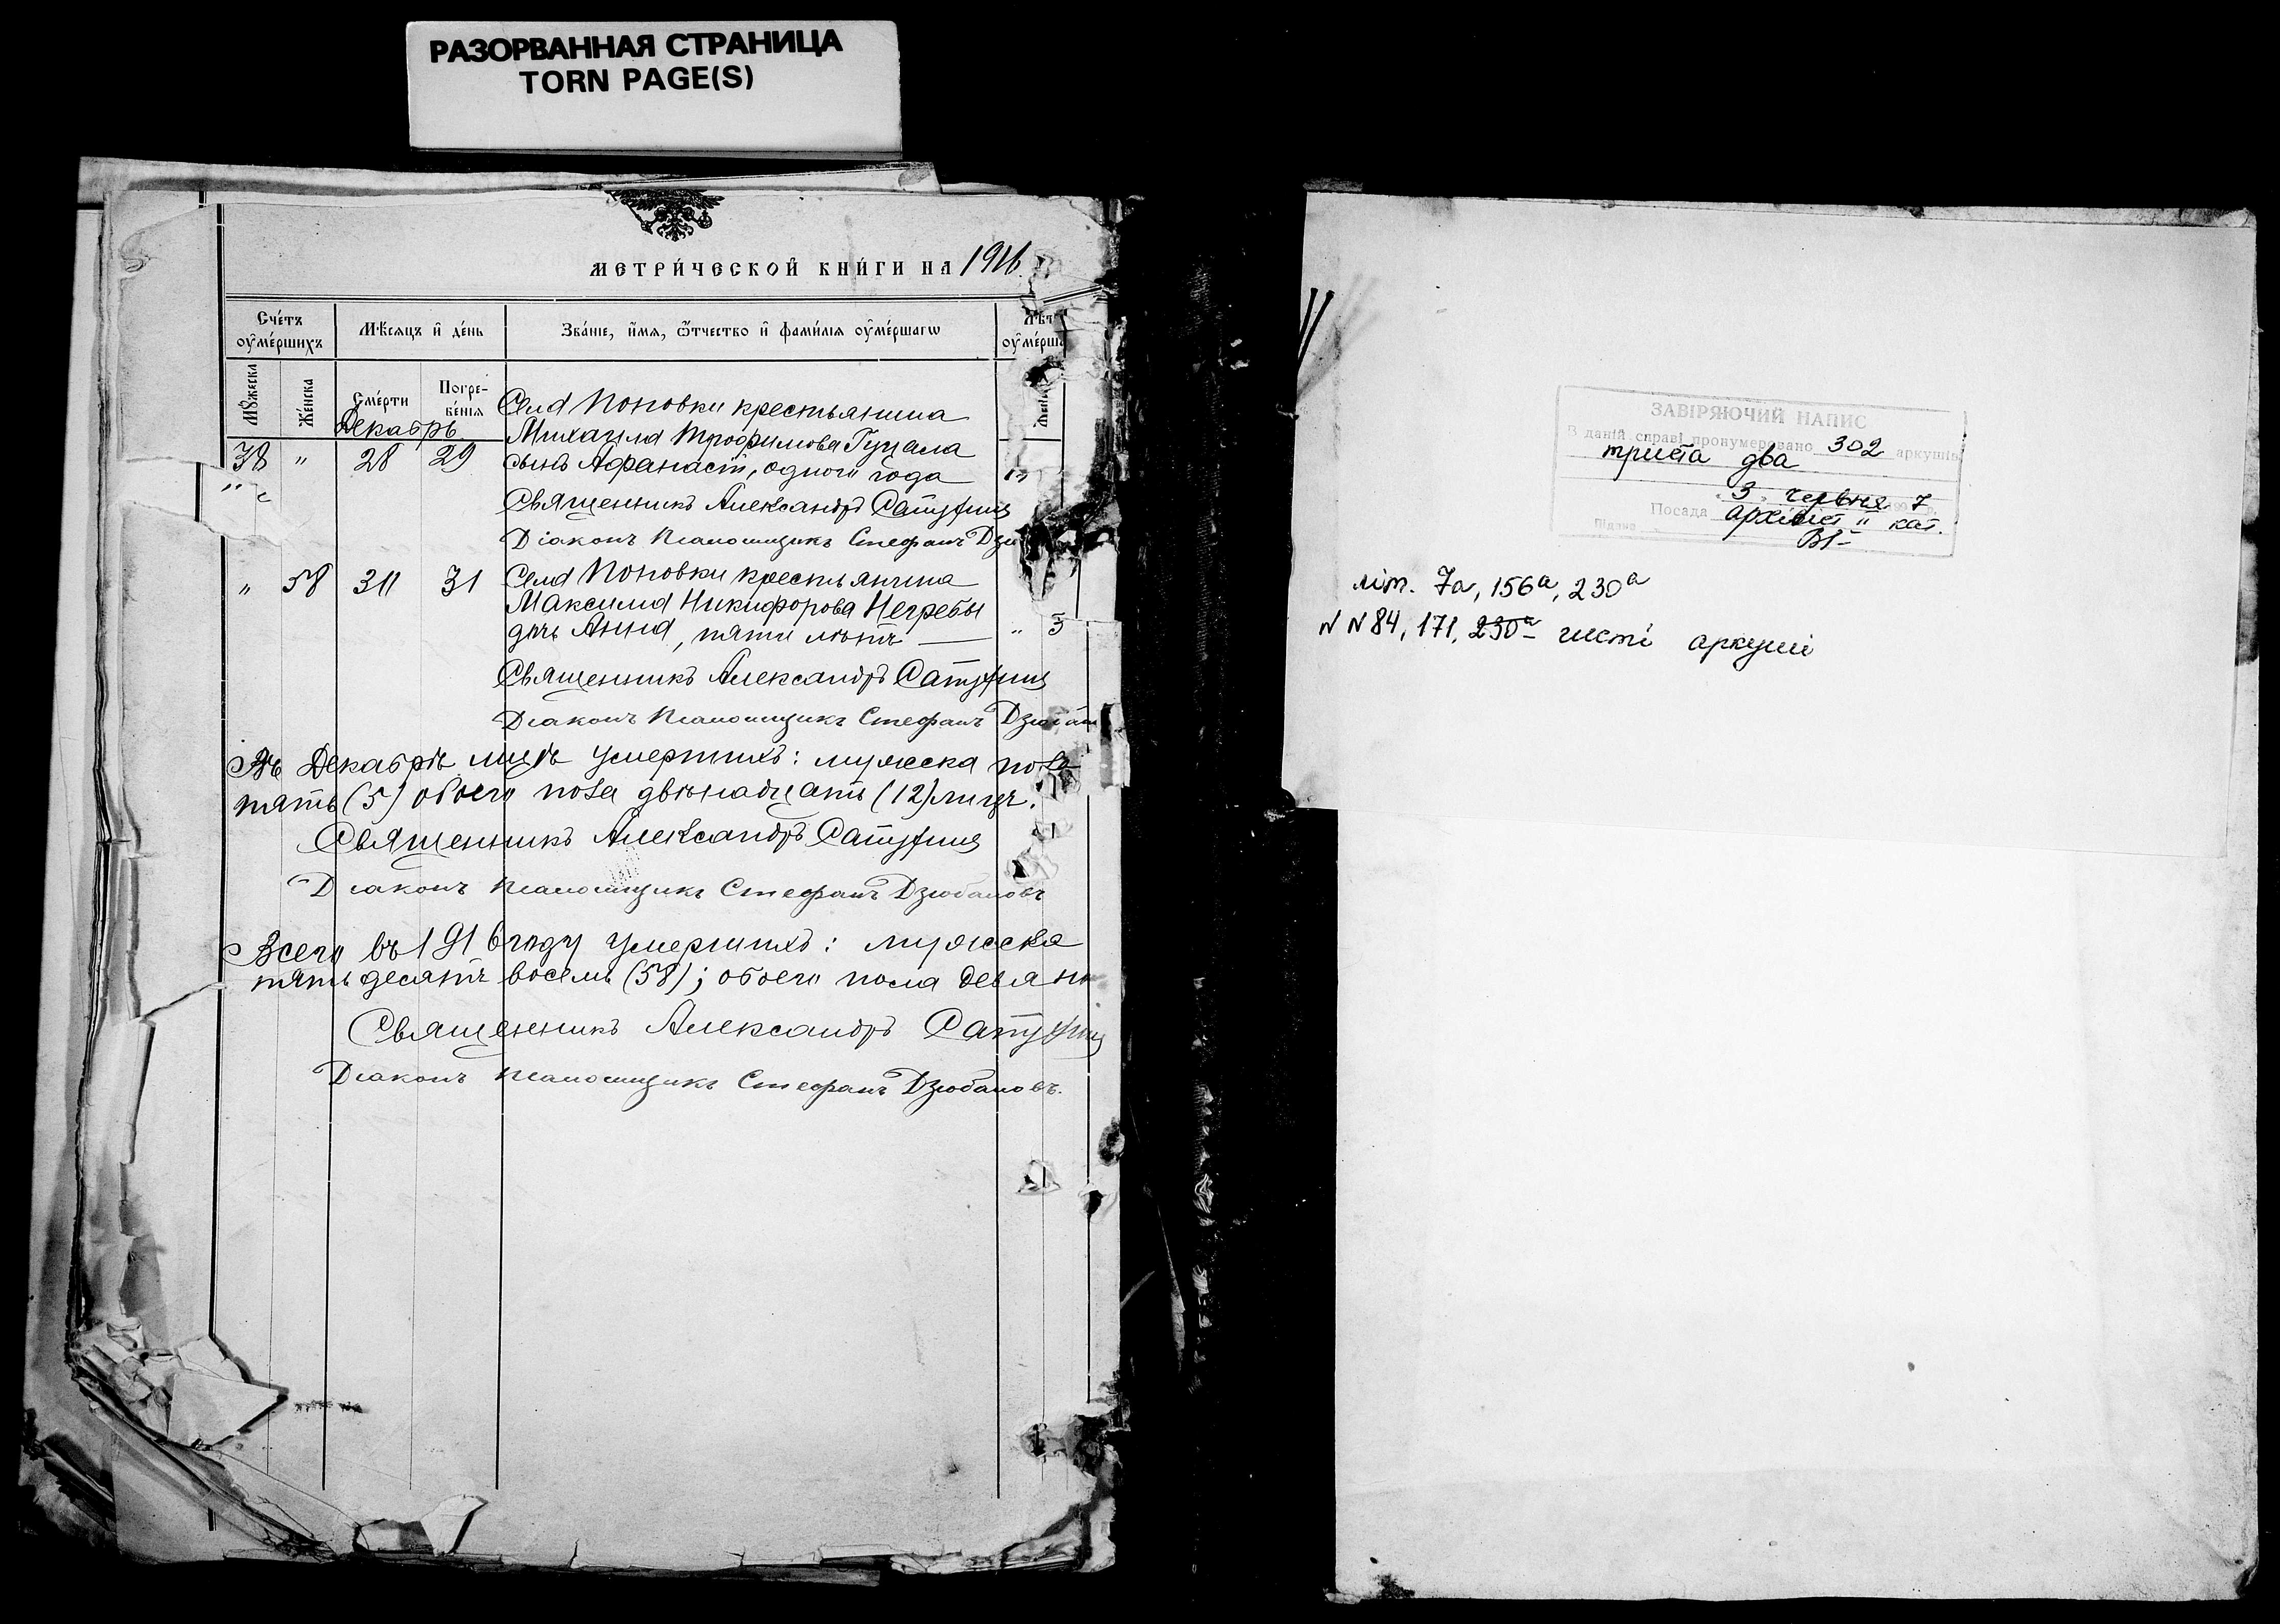 РАЗОРВАННАЯ СТРАНИЦА
TORN PAGE(S)
МЕТРИ́ЧЕСКОЙ КНИ́ГИ НА 1916.
Сче́тъ оу҆ме́ршихъ
Мѣсяцъ и҆ де́нь
Зва́нїе, и҆́мѧ, ѻ҆́тчество и҆ фами́лїѧ оу҆ме́ршагѡ
Лѣт
оу҆ме́рша
Мꙋжеска
Же́нска
Сме́рти
Погребе́нїѧ
Декабрь
38 " 28 29
Села Поповки крестьянина
Михаила Трофимова Гуцала
сынъ Афанасій, одного года
Священникъ Александръ
Діаконъ Псаломщикъ Стефанъ
" 58 30 31
Села Поповки крестьянина
Максима Никифорова Негребы
дочь Анна, пяти лѣтъ — " 5
Священникъ Александръ
Діаконъ Псаломщикъ Стефанъ
Въ Декабрѣ м-цѣ умершихъ: мужеска пола
пять (5) обоего пола двѣнадцать (12) лицъ.
Священникъ Александръ
Діаконъ Псаломщикъ Стефанъ Дзюбановъ
Всего въ 1916 году умершихъ: мужеска
пятьдесятъ восемь (58); обоего пола девяно
Священникъ Александръ
Діаконъ Псаломщикъ Стефанъ Дзюбановъ.
ЗАВІРЯЮЧИЙ НАПИС
В даній справі пронумеровано 302 аркушів
триста два
3 червня 7
Посада архівіст II кат.
Підпис
літ. 7а, 156а, 230а
N N 84, 171, 230а чисті аркуші